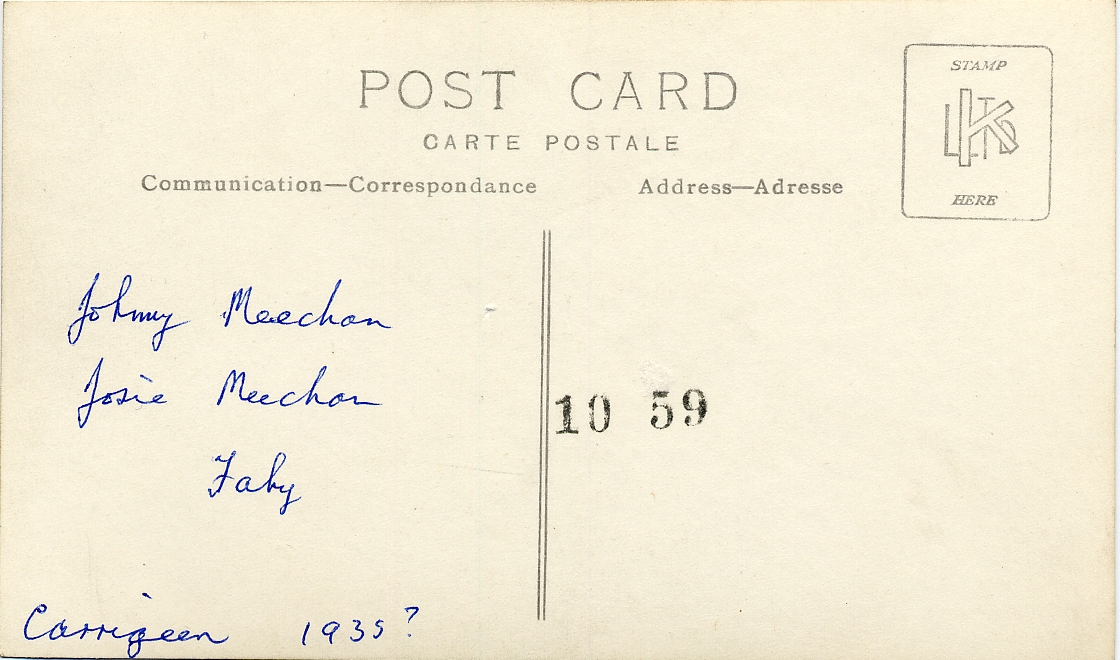 POST CARD
CARTE POSTALE
Communication—Correspondance
Address—Adresse
STAMP
K LTD
HERE
Johnny Meechan
Josie Meechan
Fahy
10 59
Carrigeen 1935?